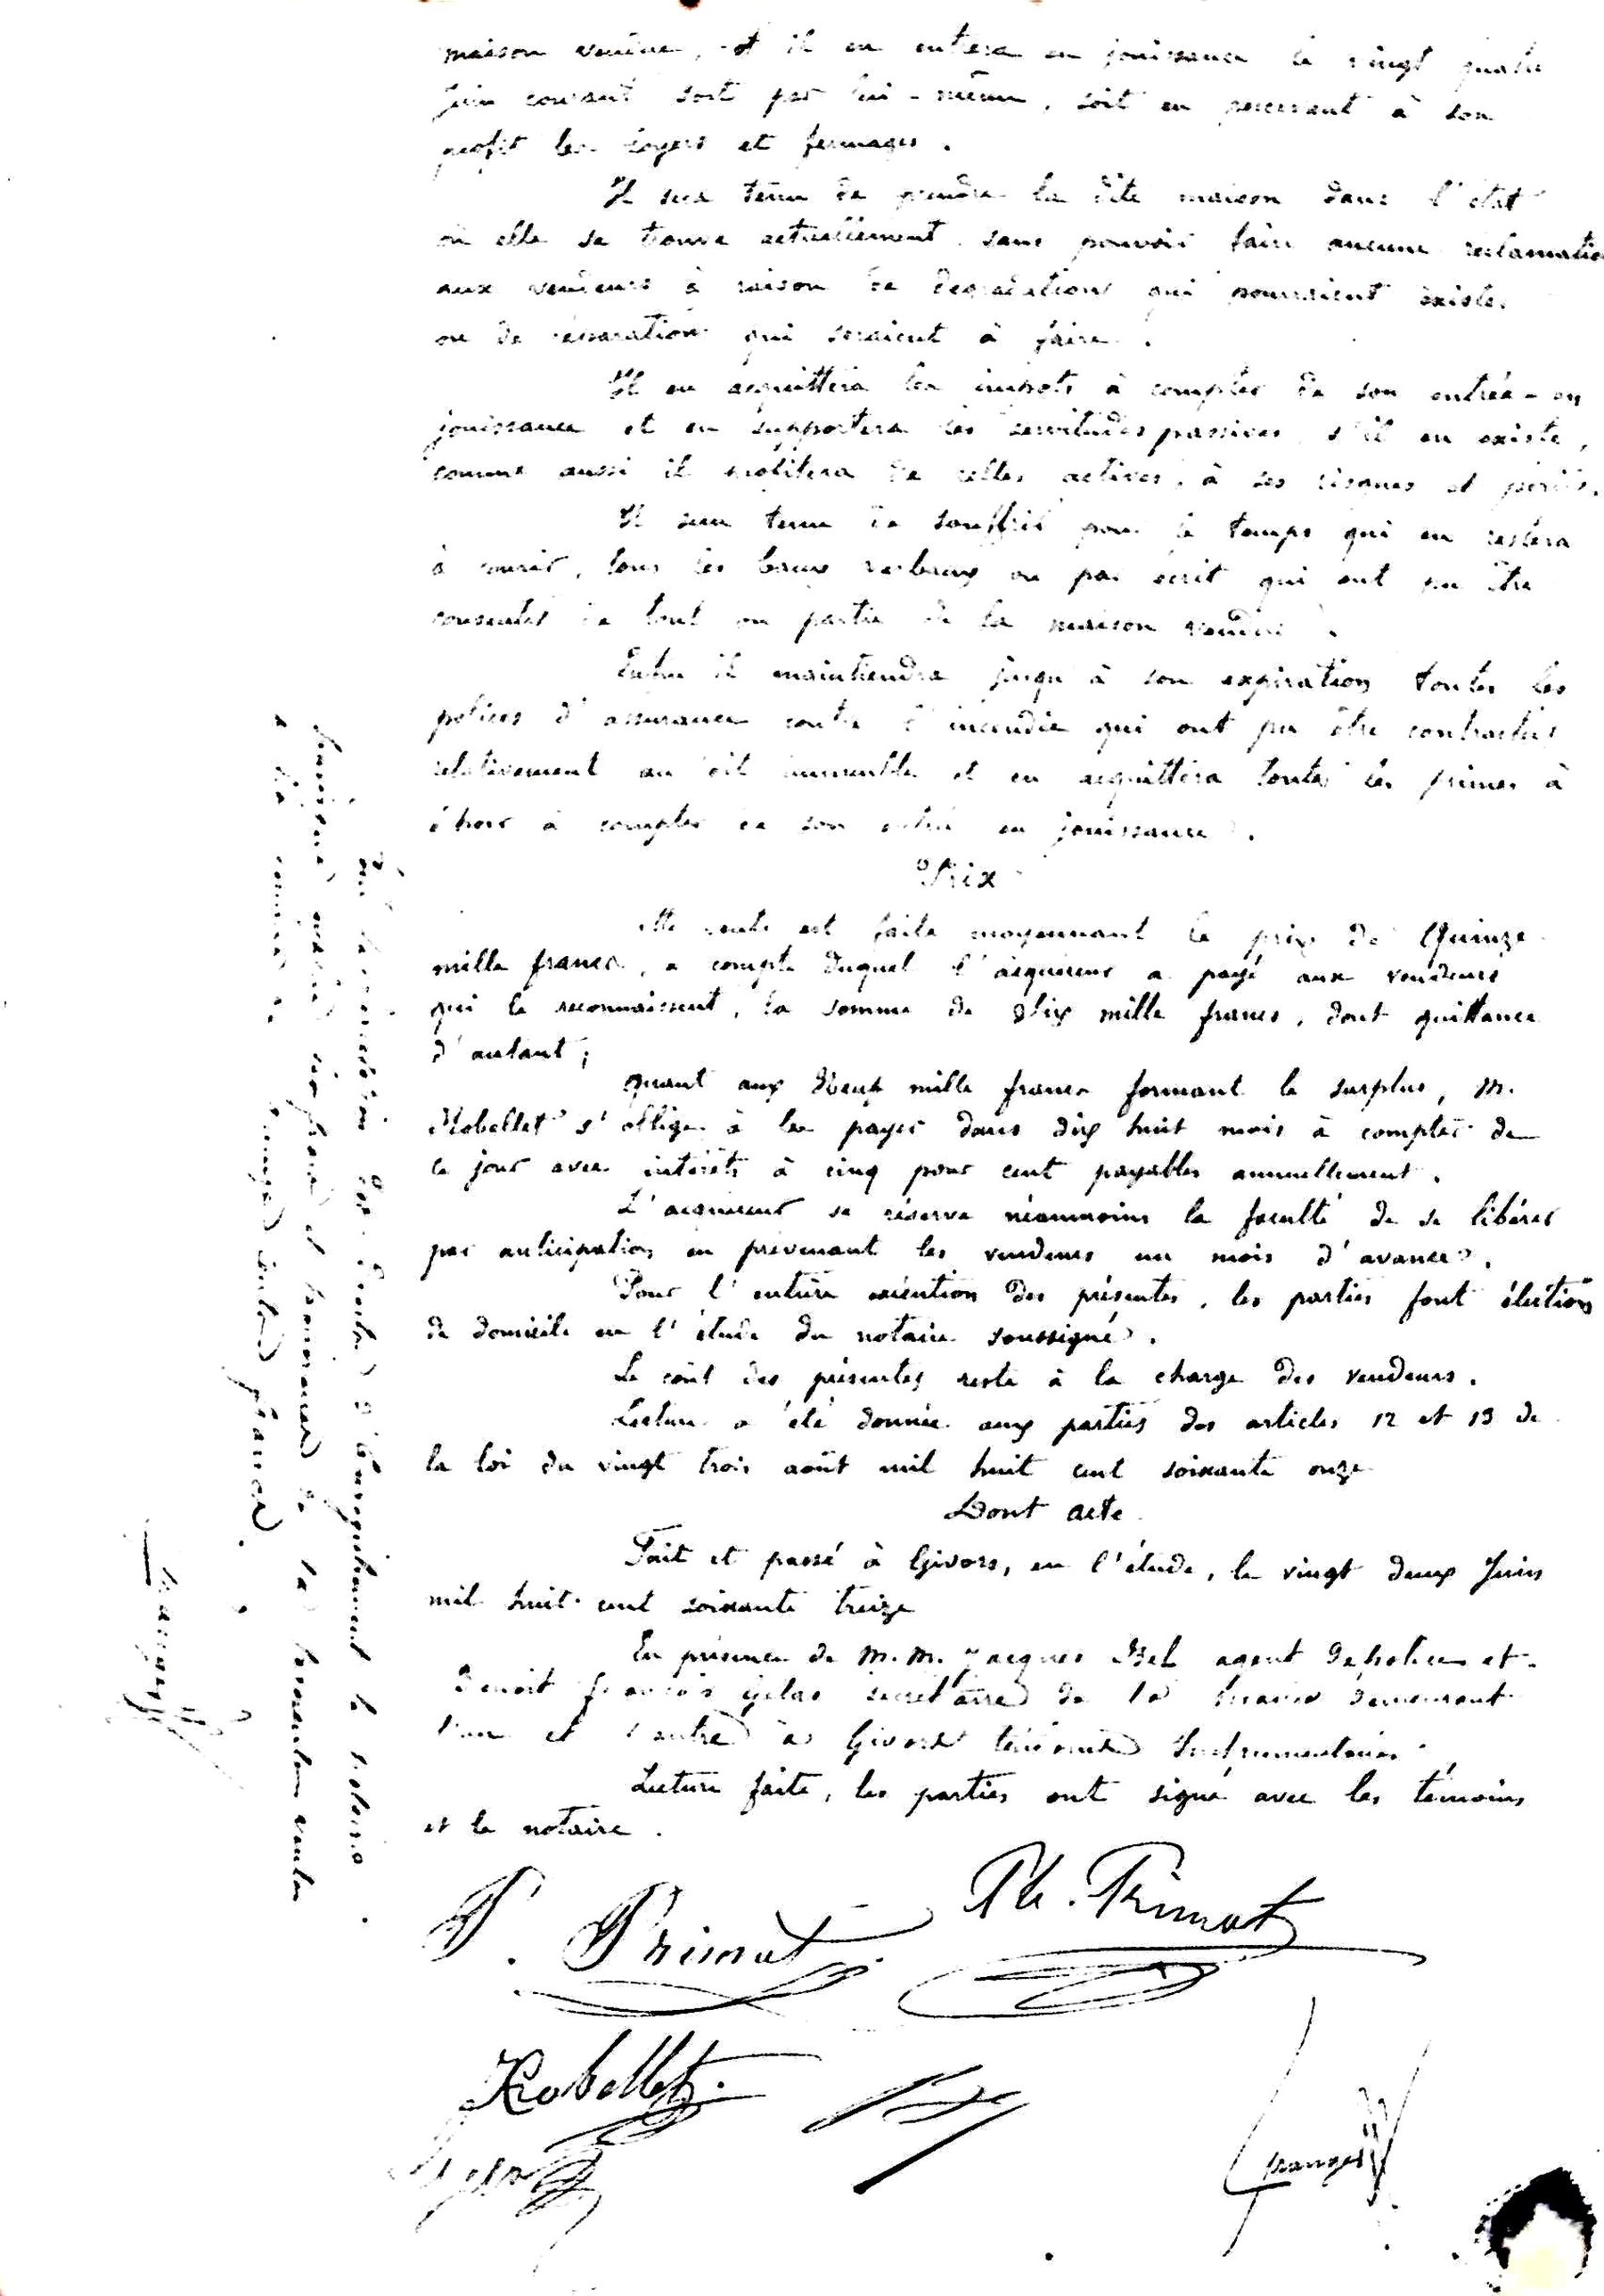 maison vendue, et il en entrera en jouissance le vingt quatre
juin courant soit par lui-même, soit en percevant à son
profit les loyers et fermages.
Il sera tenu de prendre la dite maison dans l'état
où elle se trouve actuellement sans pouvoir faire aucune reclamation
aux vendeurs à raison de degradations qui pourraient exister
ou de réparations qui seraient à faire.
Il en acquittera les impots à compter de son entrée-en
jouissance et en supportera les servitudes passives s'il en existe,
comme aussi il profitera de celles actives, à ses risques et périls.
Il sera tenu de souffrir pour le temps qui en restera
à courir, tous les baux verbaux ou par écrit qui ont pu être
consentis de tout ou partie de la maison vendue.
Enfin il maintiendra jusqu'à son expiration toutes les
polices d'assurance contre l'incendie qui ont pu être contractées
relativement au dit immeuble et en acquittera toutes les primes à
échoir à compter de son entrée en jouissance.
Prix
Cette vente est faite moyennant le prix de Quinze
mille francs, a compte duquel l'acquéreur a payé aux vendeurs
qui le reconnaissent, la somme de Six mille francs, dont quittance
d'autant;
quant aux Neuf mille francs formant le surplus, M.
Robellet s'oblige à les payer dans dix huit mois à compter de
ce jour avec intérêts à cinq pour cent payables annuellement.
L'acquéreur se réserve néanmoins la faculté de se libérer
par anticipation en prévenant les vendeurs un mois d'avance.
Pour l'entière exécution des présentes, les parties font élection
de domicile en l'étude du notaire soussigné.
Le coût des présentes reste à la charge des vendeurs.
Lecture a été donnée aux parties des articles 12 et 13 de
la loi du vingt trois août mil huit cent soixante onze
Dont acte
Fait et passé à Givors, en l'étude, le vingt deux Juin
mil huit cent soixante treize
En présence de M.M. Jacques Bel agent de police et
Benoit françois Gelas secrétaire de la Mairie demeurant
l'un et l'autre à Givors témoins Instrumentaires
Lecture faite, les parties ont signé avec les témoins
et le notaire.
P. Primat
Ph. Primat
Robellet